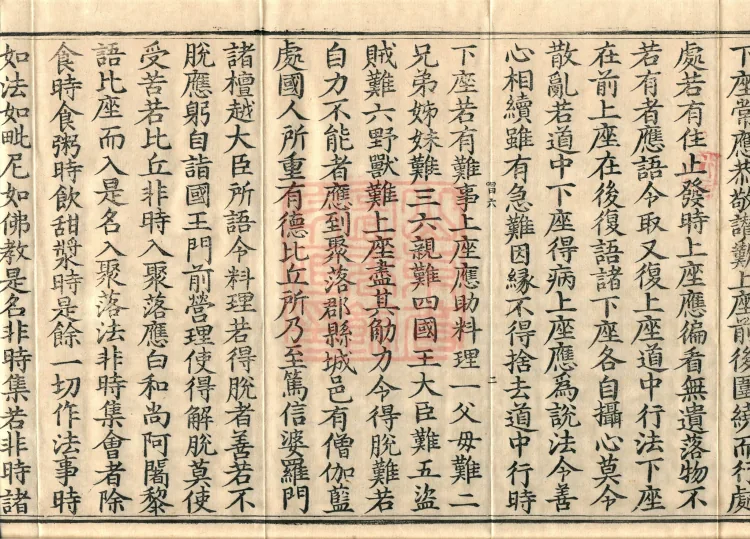 下座常應恭敬讚歎上座前後圍繞而行處
處若有住止發時上座應徧看無遺落物不
若有者應語令取又復上座道中行法下座
在前上座在後復語諸下座各自攝心莫令
散亂若道中下座得病上座應爲說法令善
心相續雖有急難因緣不得捨去道中行時
習六
二
下座若有難事上座應助料理一父母難二
兄弟姊妹難三六親難四國王大臣難五盜
賊難六野獸難上座盡其觔力令得脫難若
自力不能者應到聚落郡縣城邑有僧伽藍
處國人所重有德比丘所乃至篤信婆羅門
諸檀越大臣所語令料理若得脫者善若不
脫應躬自詣國王門前營理使得解脫莫使
受苦若比丘非時入聚落應白和尚阿闍黎
語比座而入是名入聚落法非時集會者除
食時食粥時飲甜漿時是餘一切作法事時
如法如毗尼如佛教是名非時集若非時諸